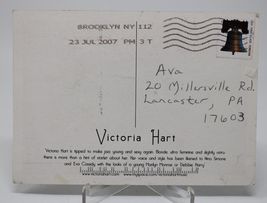 BROOKLYN NY 112
23 JUL 2007 PM 3 T
Ava
20 Millersville Rd.
Lancaster, PA
17603
Victoria Hart
Victoria Hart is tipped to make jazz young and sexy again. Blonde, ultra feminine and slightly retro,
there is more than a hint of starlet about her. Her voice and style has been likened to Nina Simone
and Eva Cassidy with the looks of a young Marilyn Monroe or Debbie Harry.